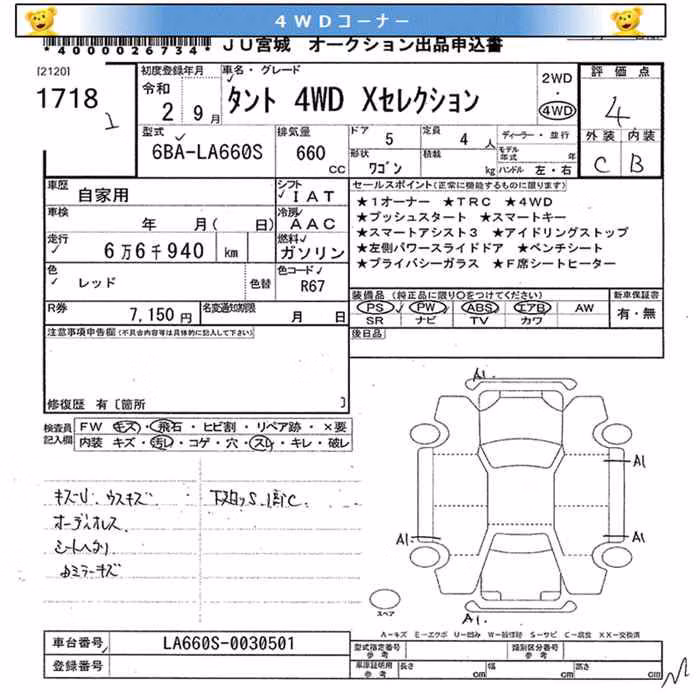 4WDコーナー
*4000026734* JU宮城 オークション出品申込書
[2120]
1718
初度登録年月
令和
2 9月
車名・グレード
タント 4WD Xセレクション
2WD
・
4WD
評価点
4
外装 内装
C B
型式
6BA-LA660S
排気量
660
cc
ドア 5
定員 4 人
形状 ワゴン
積載 kg
ディーラー・並行
モデル年式 年
ハンドル 左・右
車歴 自家用
シフト IAT
車検 年 月( 日)
冷房 AAC
走行 6万6千940 km
燃料 ガソリン
色 レッド
色替
色コード R67
R券 7,150円
名変通知期限 月 日
セールスポイント(正常に機能するものに限ります)
★1オーナー ★TRC ★4WD
★プッシュスタート ★スマートキー
★スマートアシスト3 ★アイドリングストップ
★左側パワースライドドア ★ベンチシート
★プライバシーガラス ★F席シートヒーター
装備品(純正品に限り○をつけてください)
PS PW ABS エアB AW
SR ナビ TV カワ
新車保証書
有・無
後日品
注意事項申告欄(不具合内容等は具体的に記入して下さい)
修復歴 有〔箇所 〕
検査員記入欄
FW キズ・飛石・ヒビ割・リペア跡・×要
内装 キズ・汚レ・コゲ・穴・スレ・キレ・破レ
キズU ウスキズ
オーディオレス
シートヘタリ
ミラーキズ
A1.
A1
A1
A1
A1.
スペア
A-キズ E-エクボ U-凹み W-補修跡 S-サビ C-腐食 XX-交換済
車台番号 LA660S-0030501
登録番号
型式指定番号 参考
類別区分番号 参考
車庫証明用 参考
長さ cm 幅 cm 高さ cm